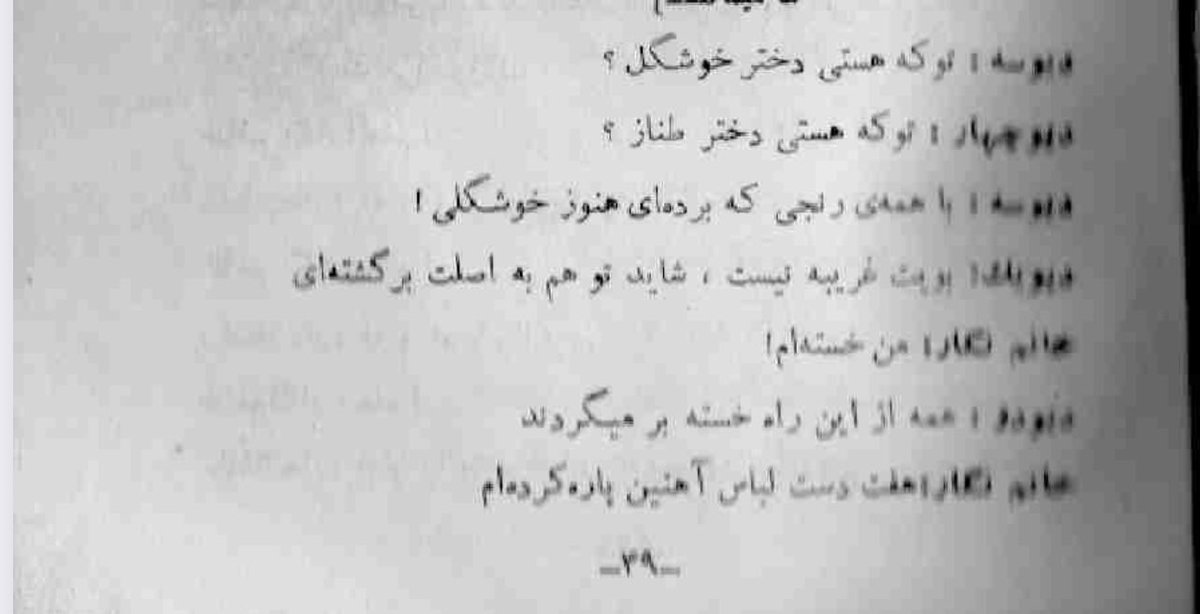 دیو سه : تو که هستی دختر خوشگل ؟
دیو چهار : تو که هستی دختر طناز ؟
دیو سه : با همه‌ی رنجی که برده‌ای هنوز خوشگلی !
دیو یک: بویت غریبه نیست ، شاید تو هم به اصلت برگشته‌ای
خانم نگار: من خسته‌ام!
دیو دو : همه از این راه خسته بر میگردند
خانم نگار: هفت دست لباس آهنین پاره کرده‌ام
_۳۹_